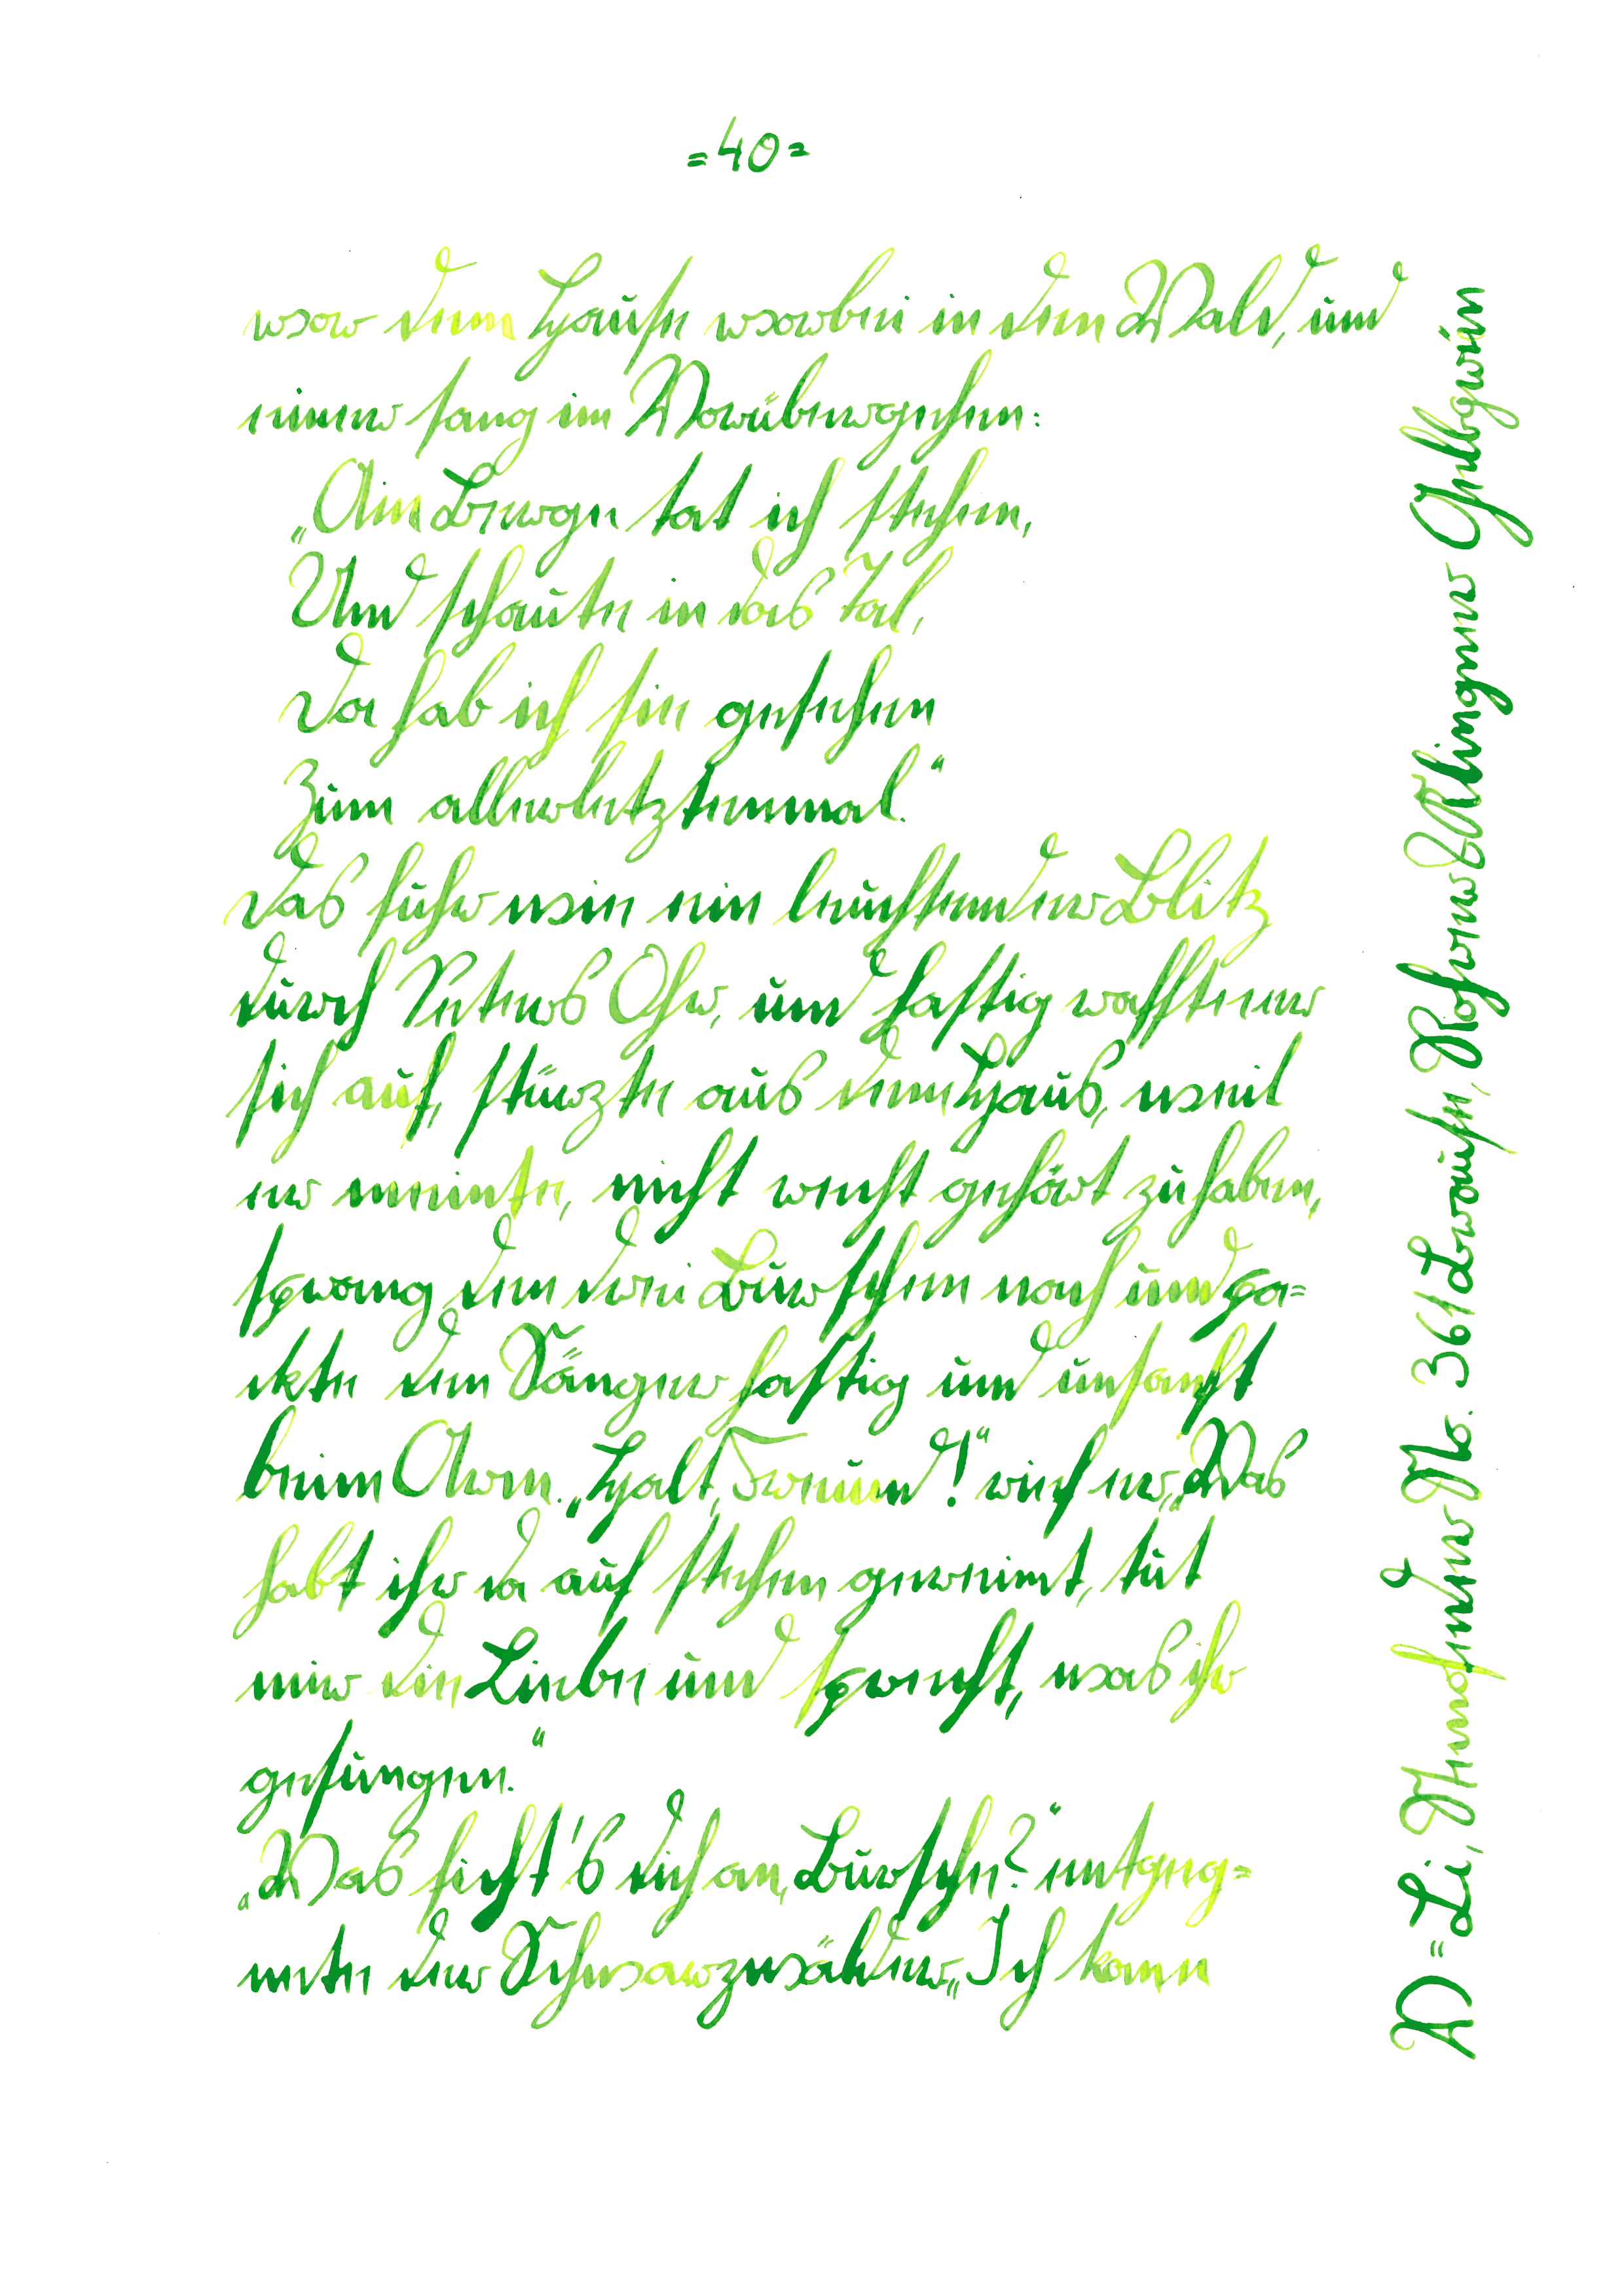 =40=
vor dem Hause vorbei in den Wald, und
einer sang im Vorübergehen:
„Am Berge tat ich stehen,
Und schaute in das Tal,
Da hab ich sie gesehen
Zum allerletztenmal."
Das fuhr wie ein leuchtender Blitz
durch Peters Ohr, und hastig raffte er
sich auf, stürzte aus dem Haus, weil
er meinte, nicht recht gehört zu haben,
sprang den drei Burschen nach und pa=
ckte den Sänger hastig und unsanft
beim Arm. „Halt, Freund!" rief er, „Was
habt ihr da auf stehen gereimt, tut
mir die Liebe und sprecht, was ihr
gesungen."
„Was ficht's dich an, Bursche?" entgeg=
nete der Schwarzwälder, „Ich kann
=Li, No. 361 Brause, Rohrer & Klingner Gelbgrün